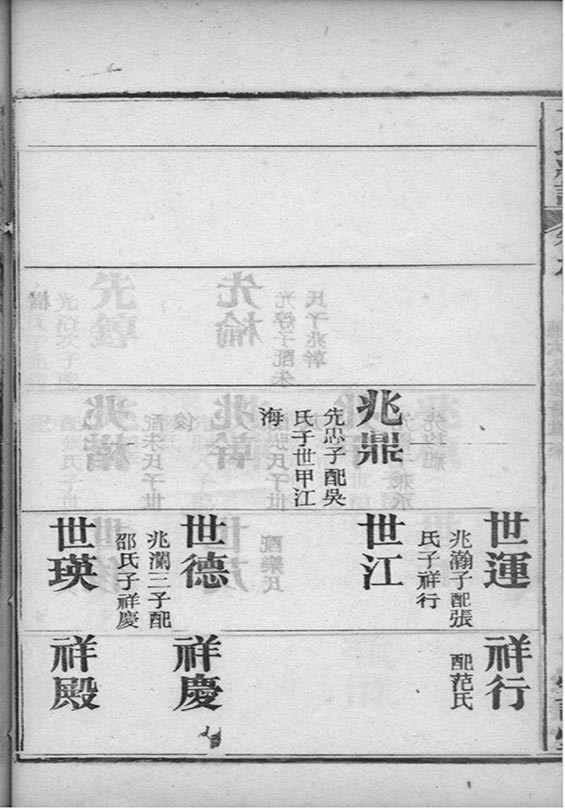 兆鼎
先忠子配吳
氏子世甲江
海
世運
兆瀚子配張
氏子祥行
世江
世德
兆瀾三子配
邵氏子祥慶
世瑛
祥行
配范氏
祥慶
祥殿